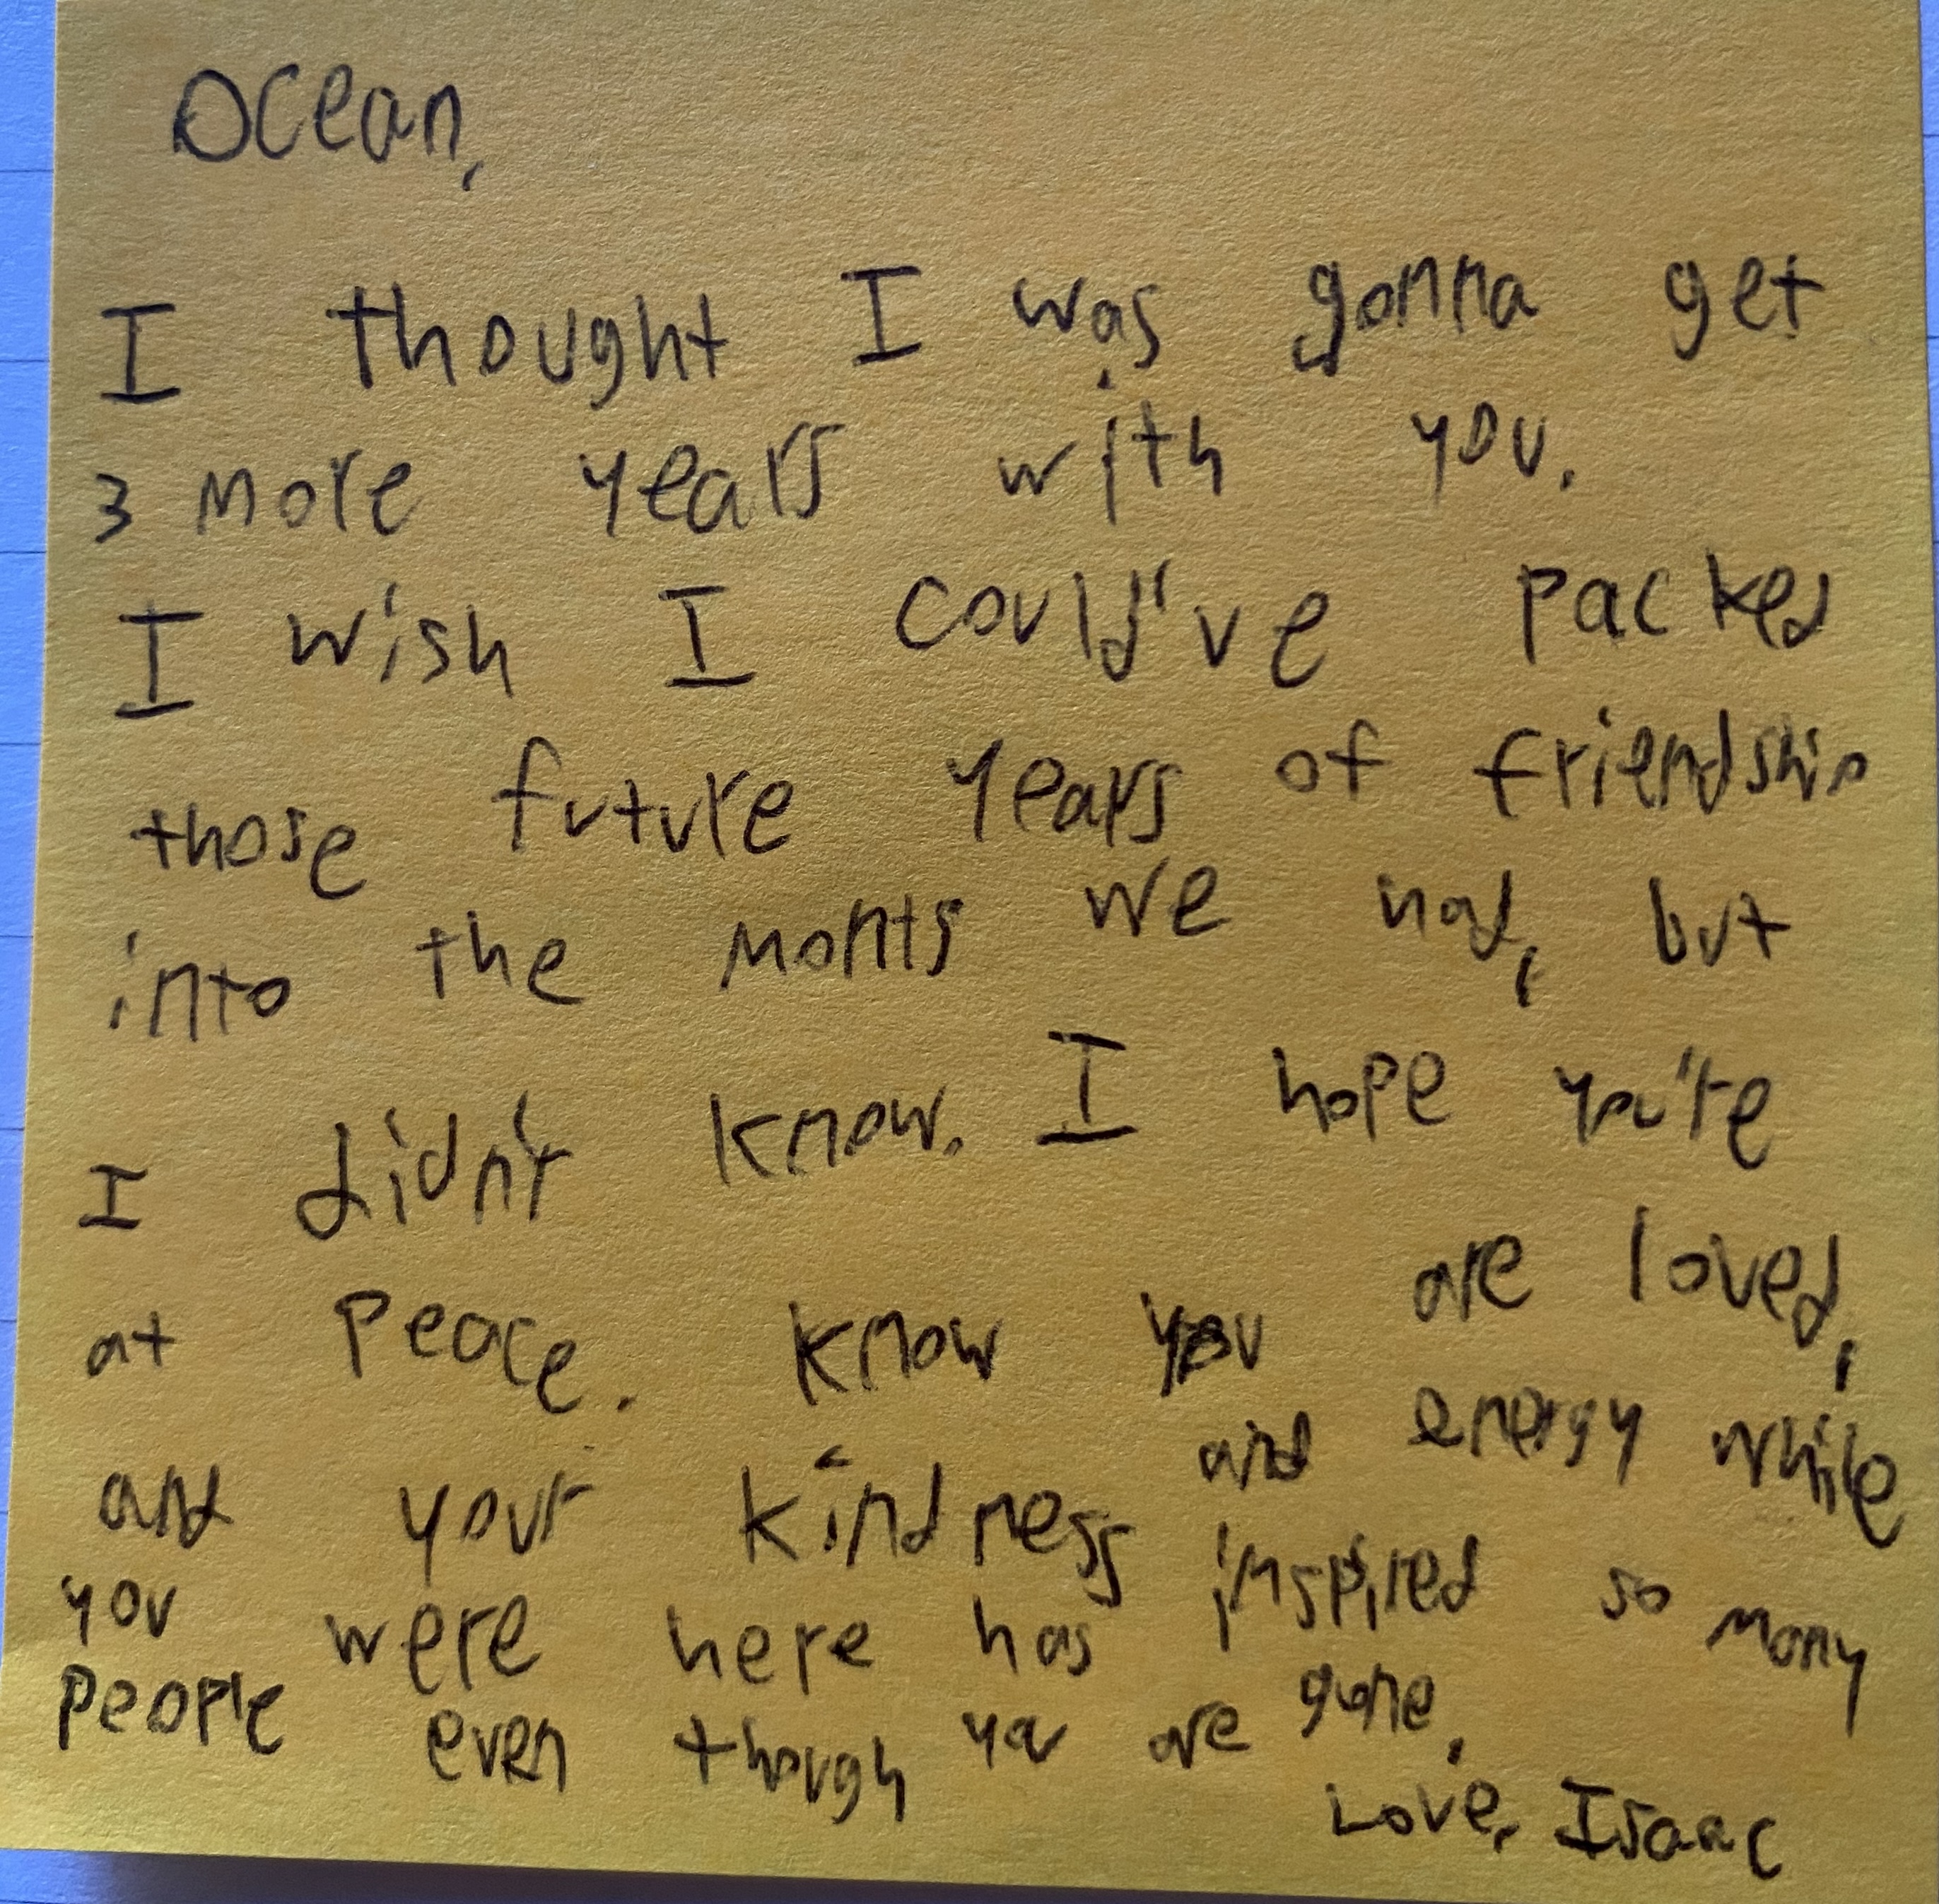 Ocean,
I thought I was gonna get
3 more years with you.
I wish I could've packed
those future years of friendship
into the monts we had, but
I didn't know. I hope you're
at peace. Know you are loved,
and your kindness and energy while
you were here has inspired so many
people even though you are gone.
Love, Isaac